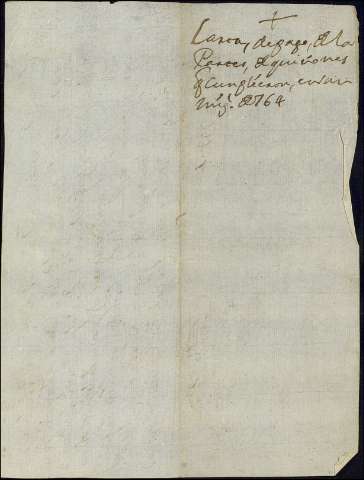 +
Carta, de pago, de la
Partes, de quiñones
q Cumplieron, en Sn
Migl. de 764